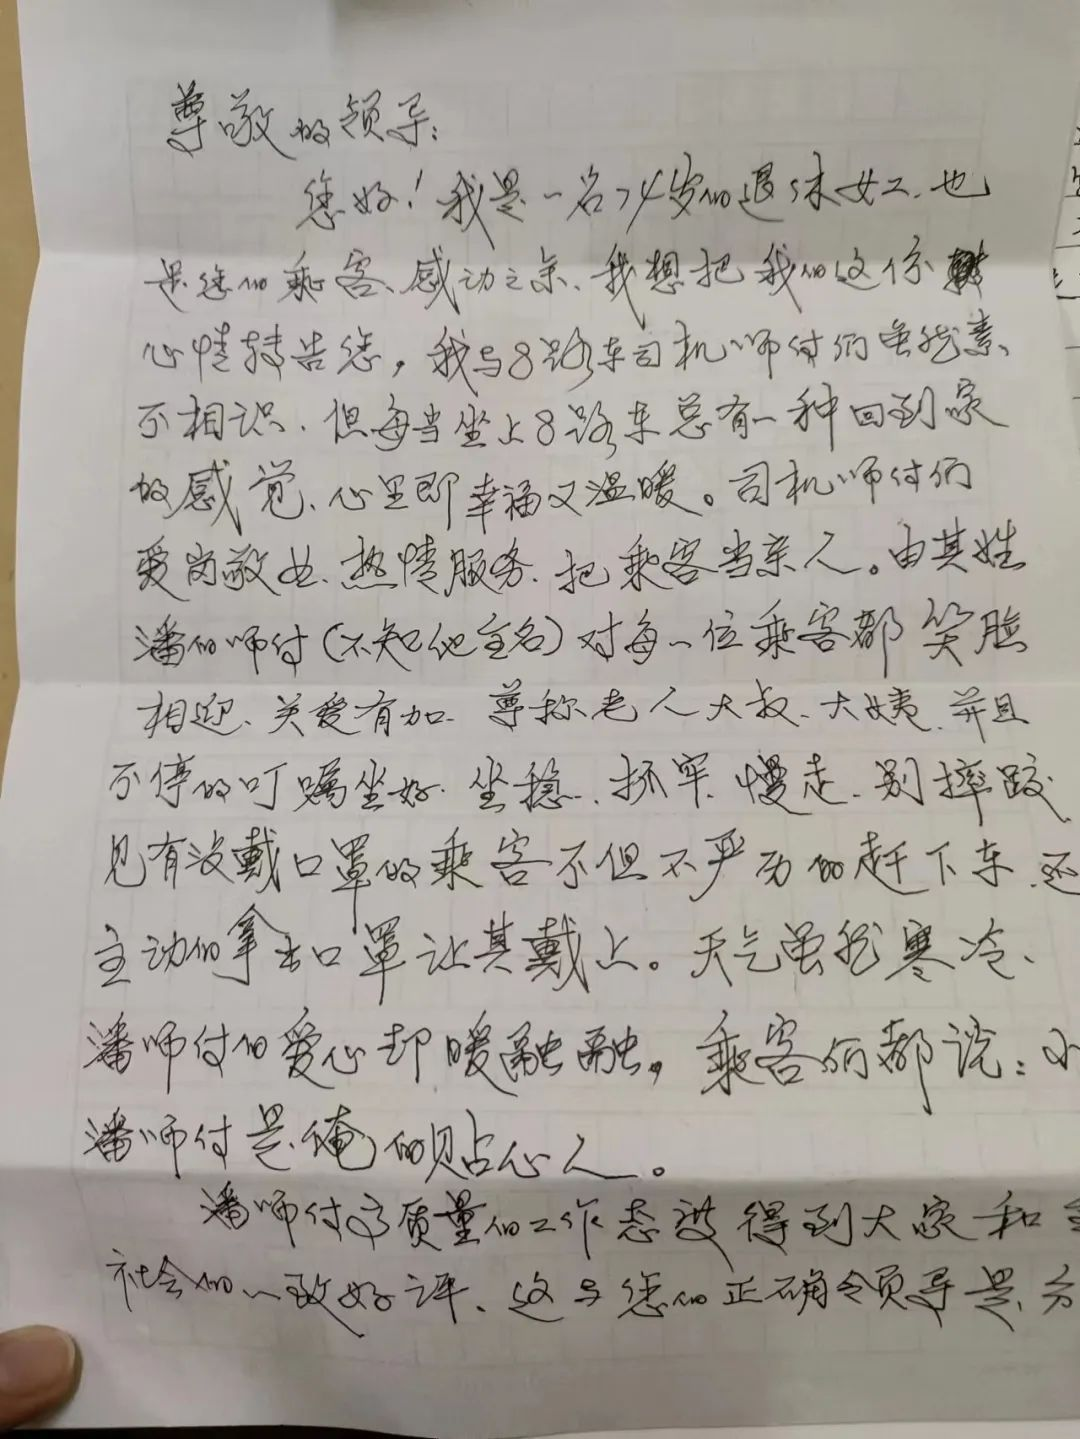 尊敬的领导:
您好!我是一名74岁的退休女工、也
是您的乘客、感动之余、我想把我的这份
心情转告您,我与8路车司机师付们虽然素
不相识、但每当坐上8路车总有一种回到家
的感觉、心里即幸福又温暖。司机师付们
爱岗敬业、热情服务、把乘客当亲人。由其姓
潘的师付(不知他全名)对每一位乘客都笑脸
相迎、关爱有加、尊称老人大叔、大姨、并且
不停的叮嘱坐好、坐稳、抓牢、慢走、别摔跤
见有没戴口罩的乘客不但不严厉的赶下车、还
主动的拿出口罩让其戴上。天气虽然寒冷、
潘师付的爱心却暖融融,乘客们都说:小
潘师付是俺的贴心人。
潘师付高质量的工作态度得到大家和
社会的一致好评、这与您的正确领导是分